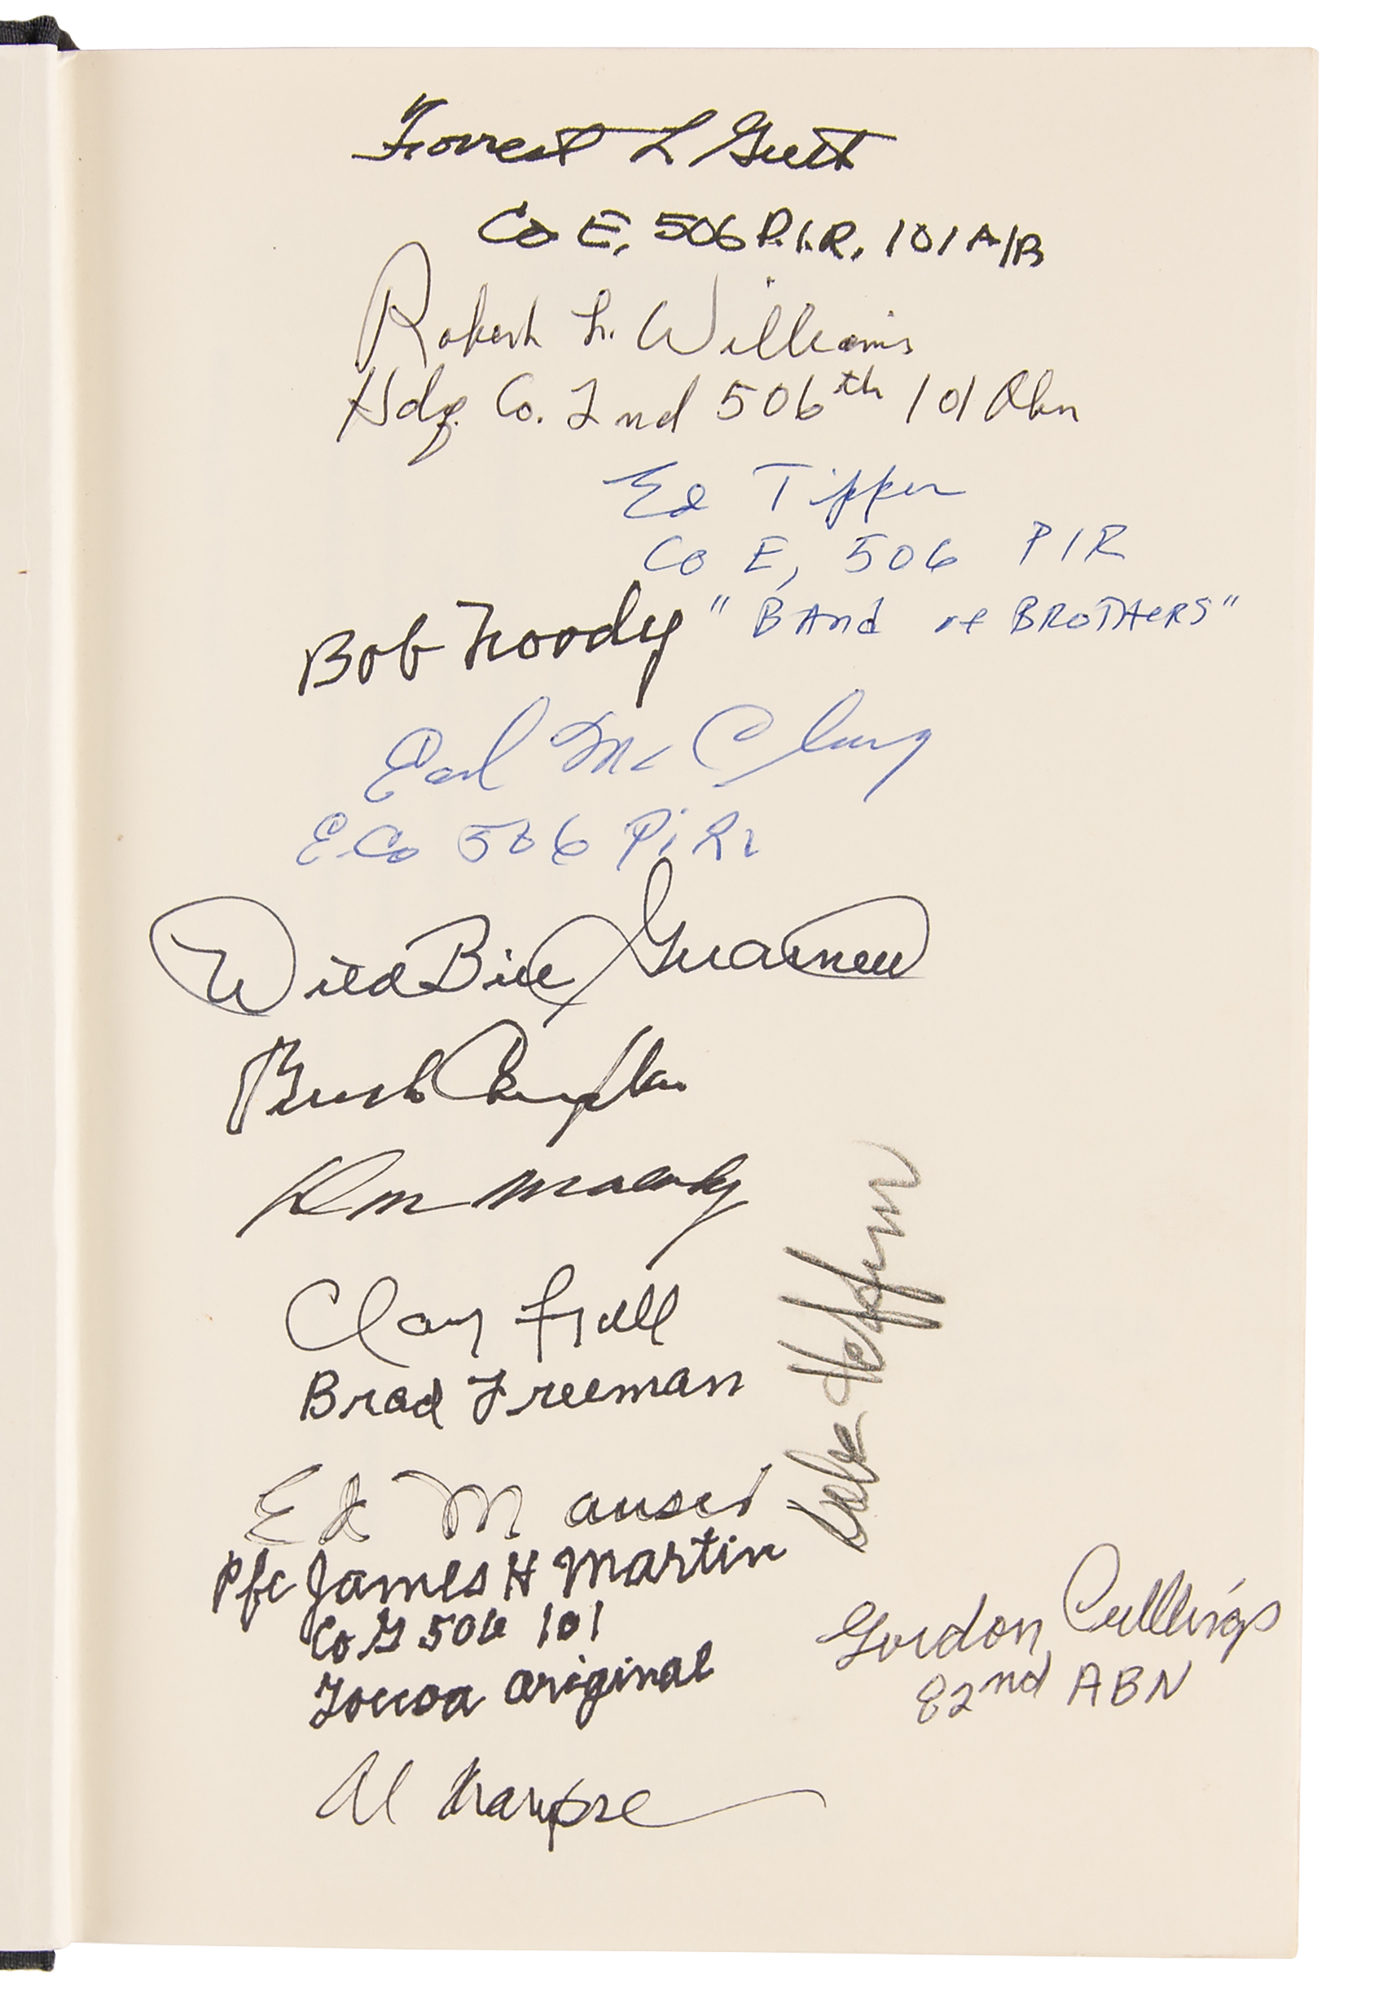 Forrest L Guth
Co E, 506 P.I.R, 101 A/B
Robert L. Williams
Hdq. Co. 2nd 506th 101 Abn
Ed Tipper
Co E, 506 PIR
"BAnd of BROTHERS"
Bob Noody
Earl Mc Clung
E-Co 506 P.I.R.
Wild Bill Guarnere
Buck Compton
Don Malarkey
Clancy Lyall
Brad Freeman
Babe Heffron
Ed Mauser
Pfc James H Martin
Co G 506 101
Toccoa original
Gordon Cullings
82nd ABN
Al Krampre